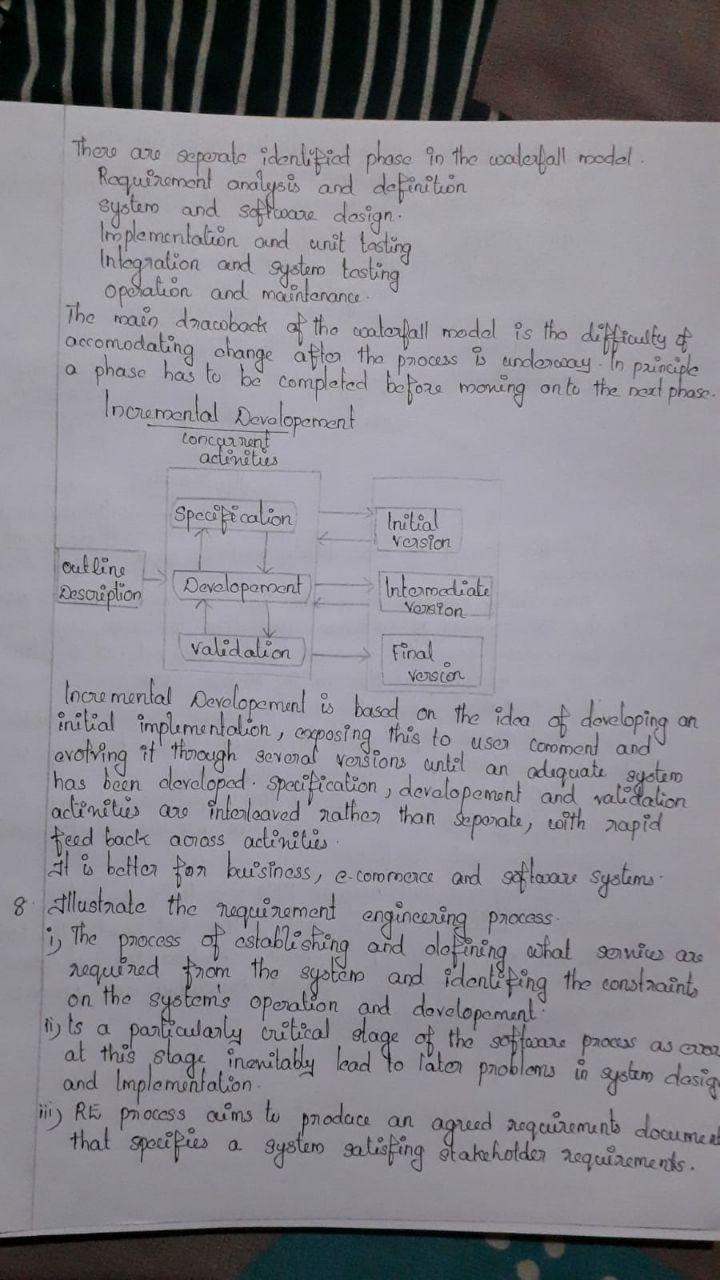 There are seperate identified phase in the waterfall model.
Requirement analysis and definition
system and software design.
Implementation and unit testing
Integration and system testing
operation and maintenance.
The main drawback of the waterfall model is the difficulty of
accomodating change after the process is underway. In principle
a phase has to be completed before moving onto the next phase.
Incremental Developement
concurrent
activities
Specification
Initial
version
outline
Description
Developement
Intermediate
version
validation
Final
version
Incremental Developement is based on the idea of developing an
initial implementation, exposing this to user comment and
evolving it through several versions until an adequate system
has been developed. specification, developement and validation
activities are interleaved rather than seperate, with rapid
feed back across activities.
It is better for buisiness, e-commerce and software systems.
8. Illustrate the requirement engineering process.
i) The process of establishing and defining what services are
required from the system and identifing the constraints
on the system's operation and developement.
ii) Is a particularly critical stage of the software process as
at this stage inevitably lead to later problems in system desig
and Implementation.
iii) RE process aims to produce an agreed requirements documen
that specifies a system satisfing stakeholder requirements.